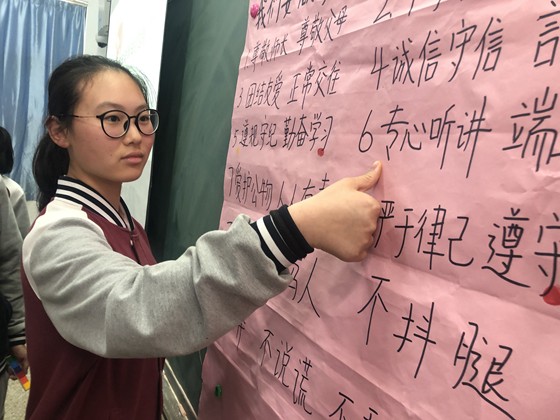 我们要
1尊敬师长 尊敬父母
3团结友爱 正常交往 4诚信守信 言
5遵规守纪 勤奋学习 6专心听讲 端
7爱护公物 人人有责
严于律己 遵守
骂人 不抖腿
不说谎 不